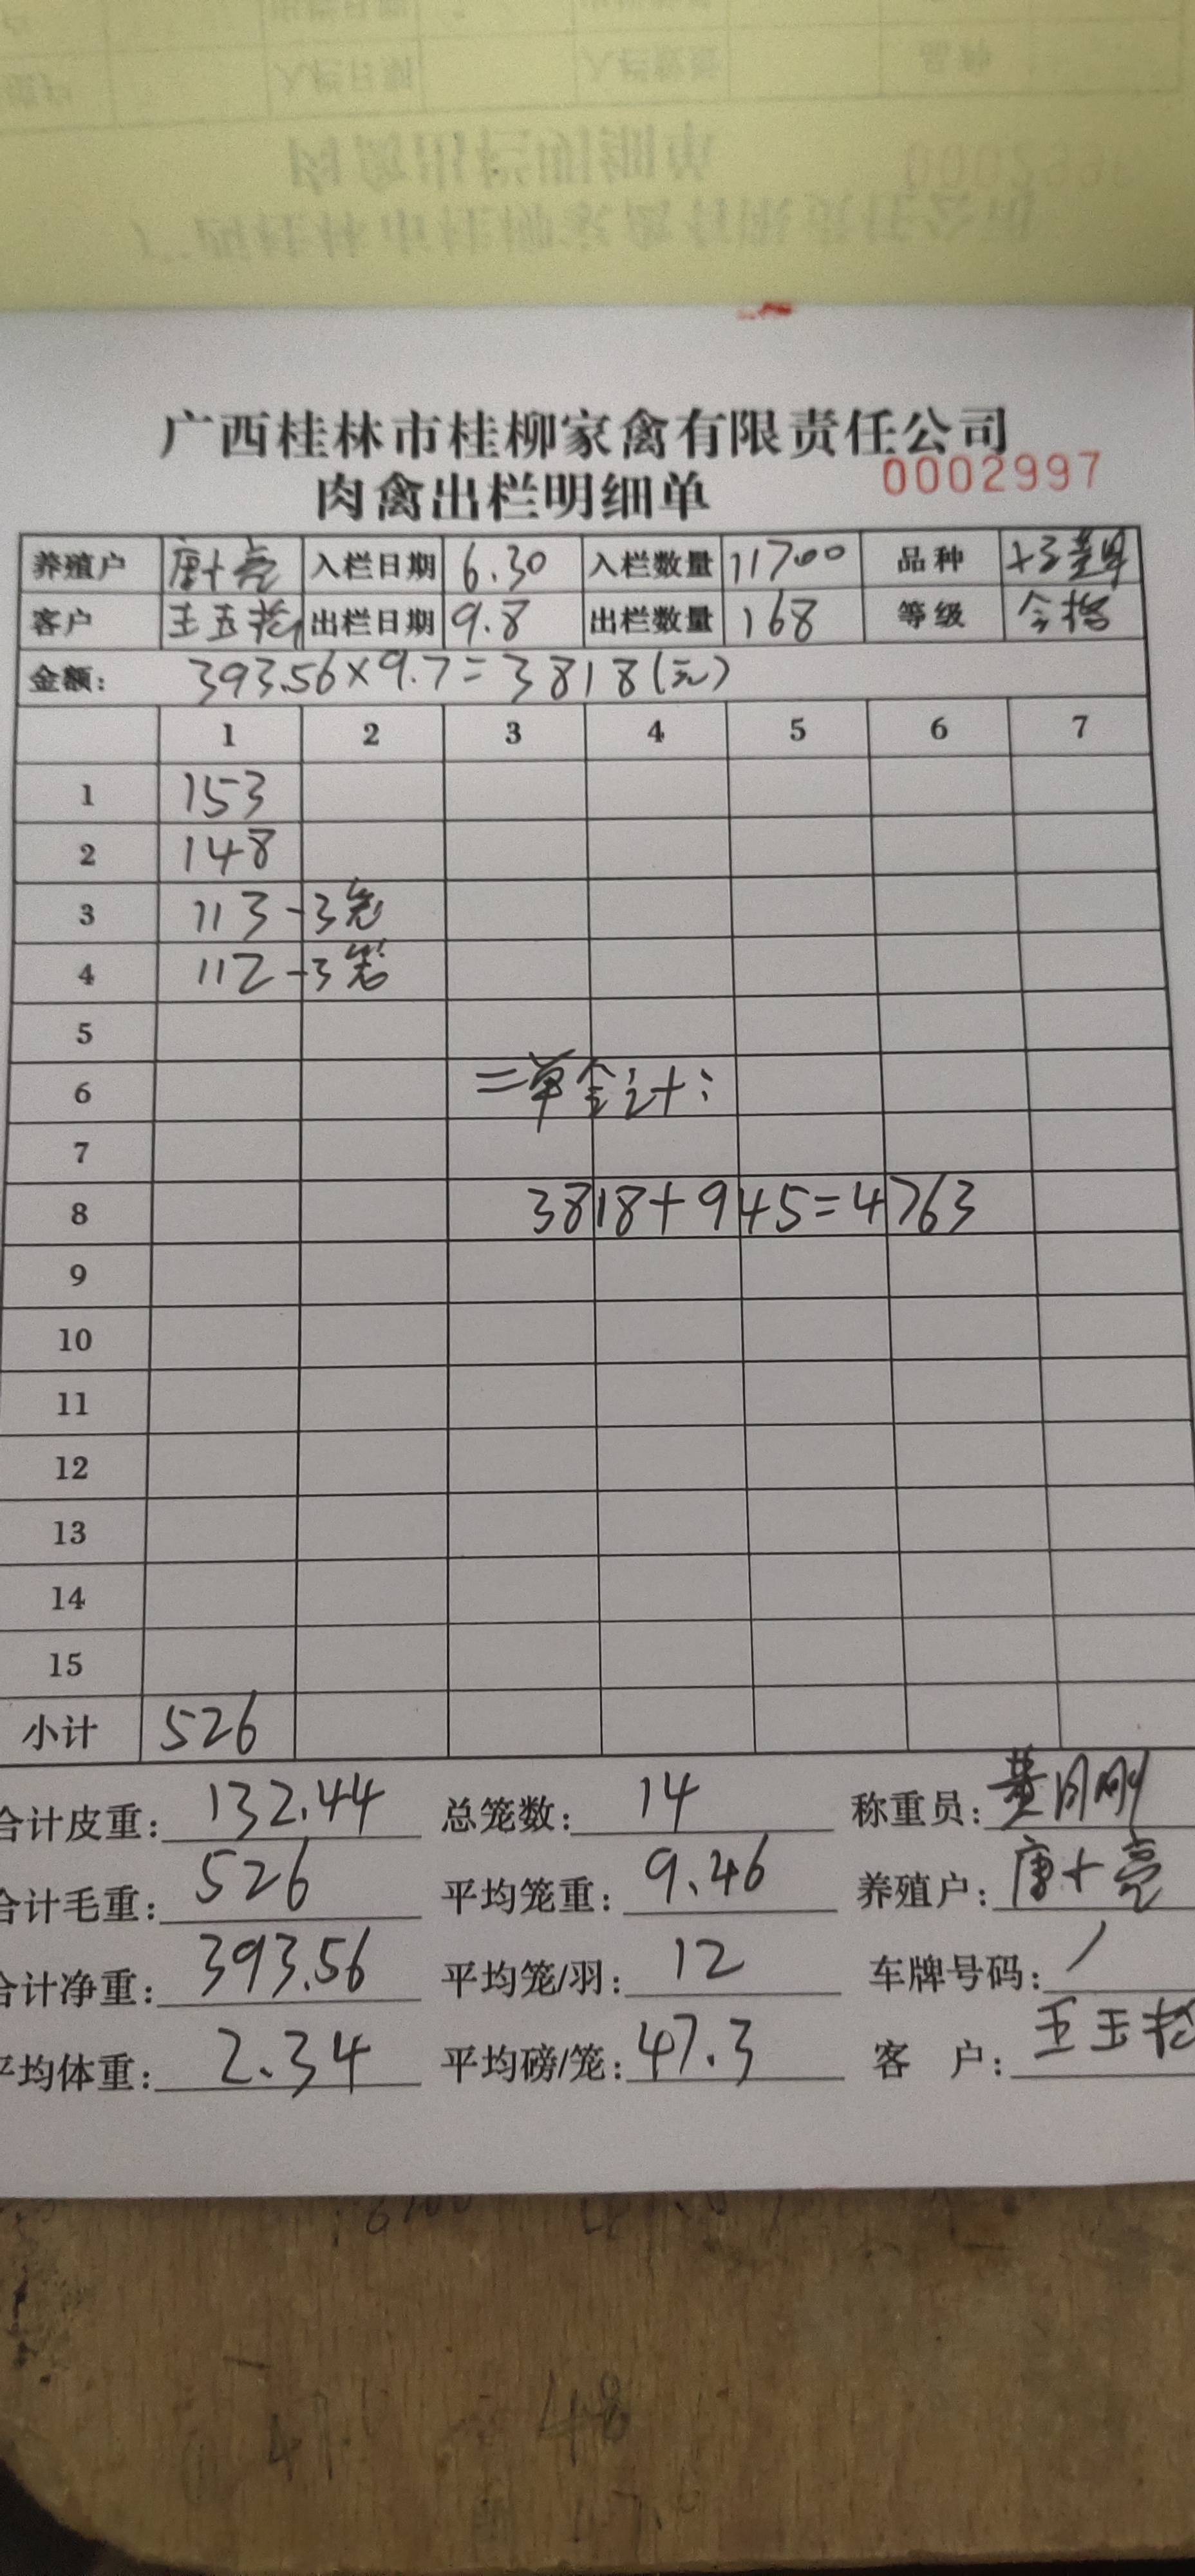 广西桂林市桂柳家禽有限责任公司
肉禽出栏明细单 0002997
养殖户 唐十亮 入栏日期 6.30 入栏数量 11700 品种
客户 出栏日期 9.8 出栏数量 168 等级 合格
金额: 393.56×9.7=3818(元)
1 2 3 4 5 6 7
1 153
2 148
3 113-3笼
4 112-3笼
5
6 二单合计:
7
8 3818+945=4763
9
10
11
12
13
14
15
小计 526
合计皮重: 132.44 总笼数: 14 称重员: 黄月刚
合计毛重: 526 平均笼重: 9.46 养殖户: 唐十亮
合计净重: 393.56 平均笼/羽: 12 车牌号码: /
平均体重: 2.34 平均磅/笼: 47.3 客户: